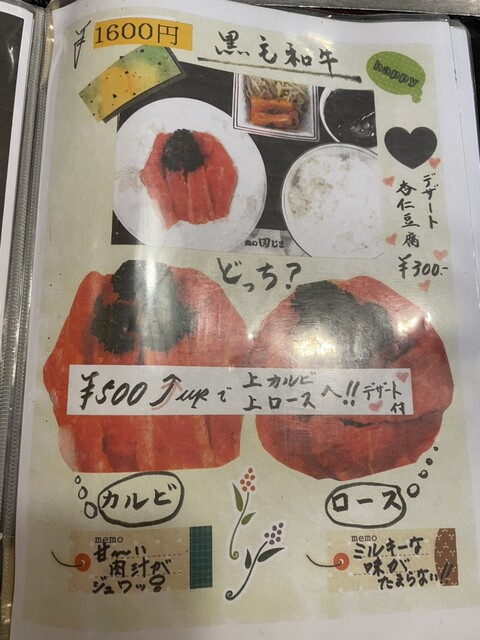 ¥1600円
黒毛和牛
happy
デザート
杏仁豆腐
¥300-
どっち?
¥500 UPで 上カルビ
上ロース へ!! デザート付
カルビ
ロース
memo
甘〜い
肉汁が
ジュワッ!!
memo
ミルキーな
味が
たまらない!!